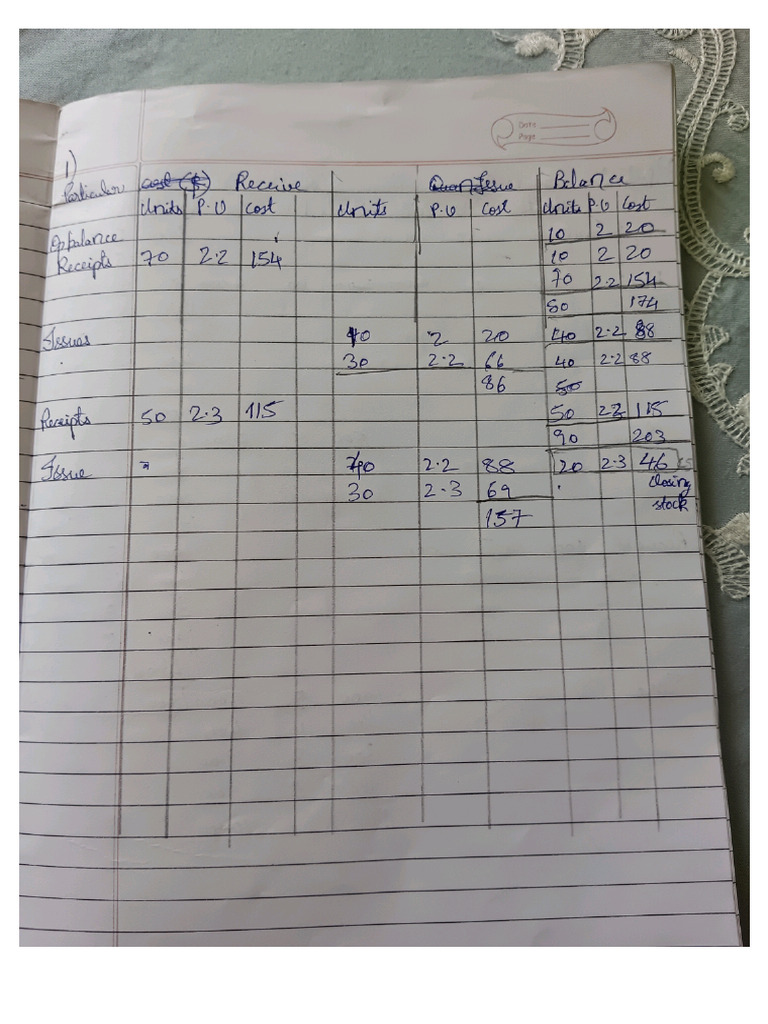 Date
Page
1)
Particular Cost ($) Receive Quan Issue Balance
Units P.U Cost Units P.U Cost Units P.U Cost
10 2 20
Op balance 10 2 20
Receipts 70 2.2 154 70 2.2 154
80 174
Issues 10 2 20 40 2.2 88
30 2.2 66 40 2.2 88
86 50
Receipts 50 2.3 115 50 2.3 115
90 203
Issue 40 2.2 88 20 2.3 46
30 2.3 69 closing
157 stock